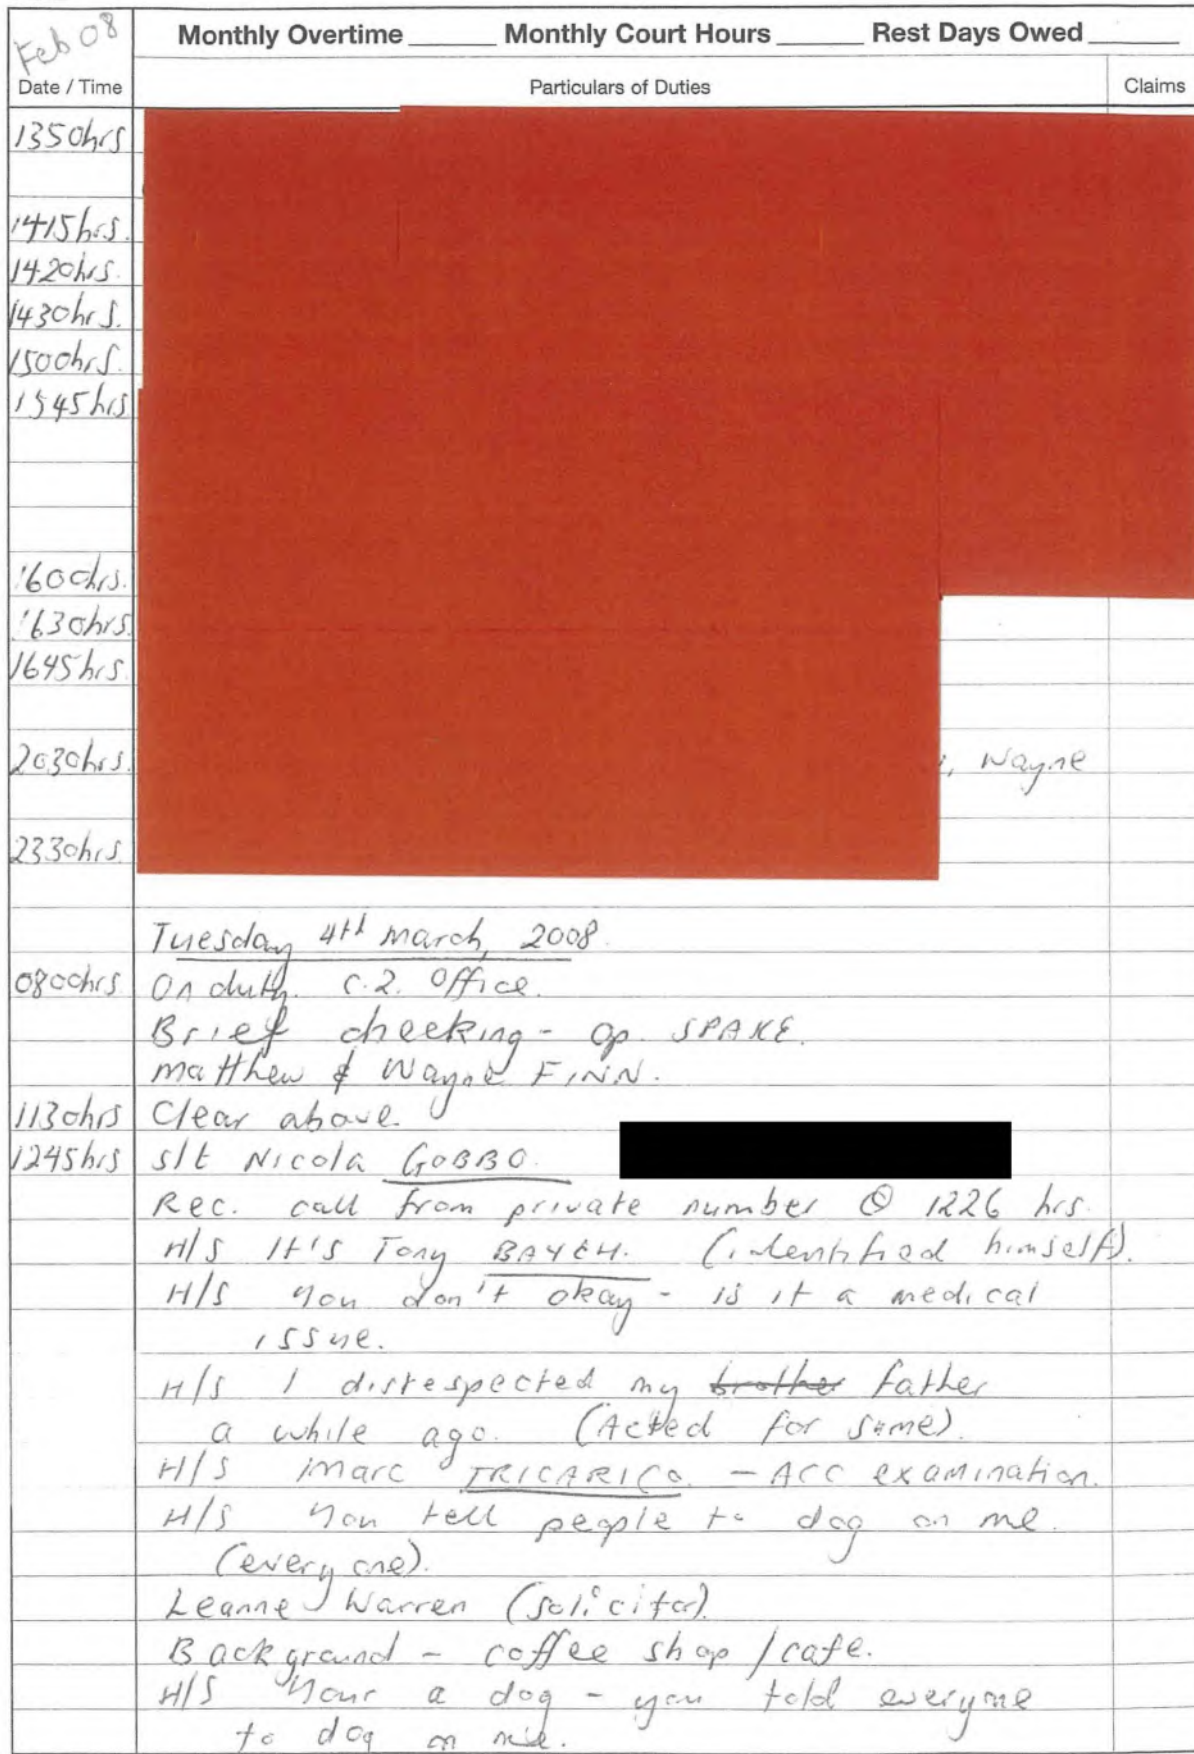 Feb 08
Monthly Overtime Monthly Court Hours Rest Days Owed
Date / Time Particulars of Duties Claims
1350hrs
1415hrs.
1420hrs.
1430hrs.
1500hrs.
1545hrs
1600hrs.
1630hrs.
1645hrs.
2030hrs. , Wayne
2330hrs.
Tuesday 4th March, 2008.
0800hrs On duty. C.2. Office.
Brief checking - Op. SPAKE.
Matthew & Wayne FINN.
1130hrs Clear above.
1245hrs s/t Nicola GOBBO.
Rec. call from private number @ 1226 hrs.
H/S It's Tony BAYEH. (identified himself).
H/S You don't okay - is it a medical
issue.
H/S I disrespected my brother father
a while ago. (Acted for same).
H/S Marc TRICARICO. - ACC examination.
H/S You tell people to dog on me.
(everyone).
Leanne Warren (solicitor).
Background - coffee shop / cafe.
H/S Your a dog - you told everyone
to dog on me.